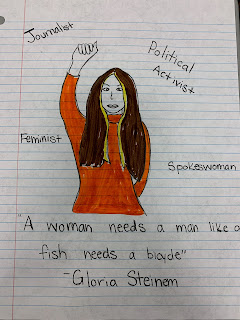 Journalist
Political
Activist
Feminist
Spokeswoman
"A woman needs a man like a
fish needs a bicycle"
-Gloria Steinem